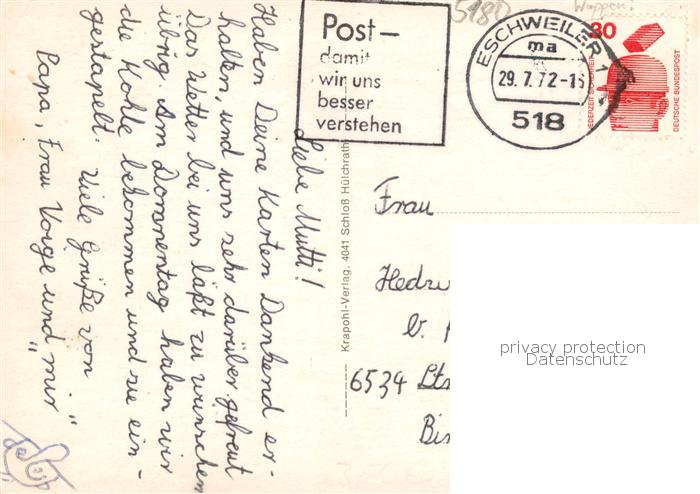 Liebe Mutti!
Haben Deine Karten Dankend er-
halten, und uns sehr darüber gefreut
Das Wetter bei uns läßt zu wünschen
übrig. Am Donnerstag haben wir
die Kohle bekommen und sie ein-
gestapelt. Viele Grüße von
Papa, "Frau Voige und mir"
Post-
damit
wir uns
besser
verstehen
5180
Wappen!
ESCHWEILER 1
ma
29.7.72-15
518
30
JEDERZEIT SICHERHEIT
DEUTSCHE BUNDESPOST
Krapohl-Verlag, 4041 Schloß Hülchrath
Frau
Hedw
b.
6534
Bin
privacy protection
Datenschutz